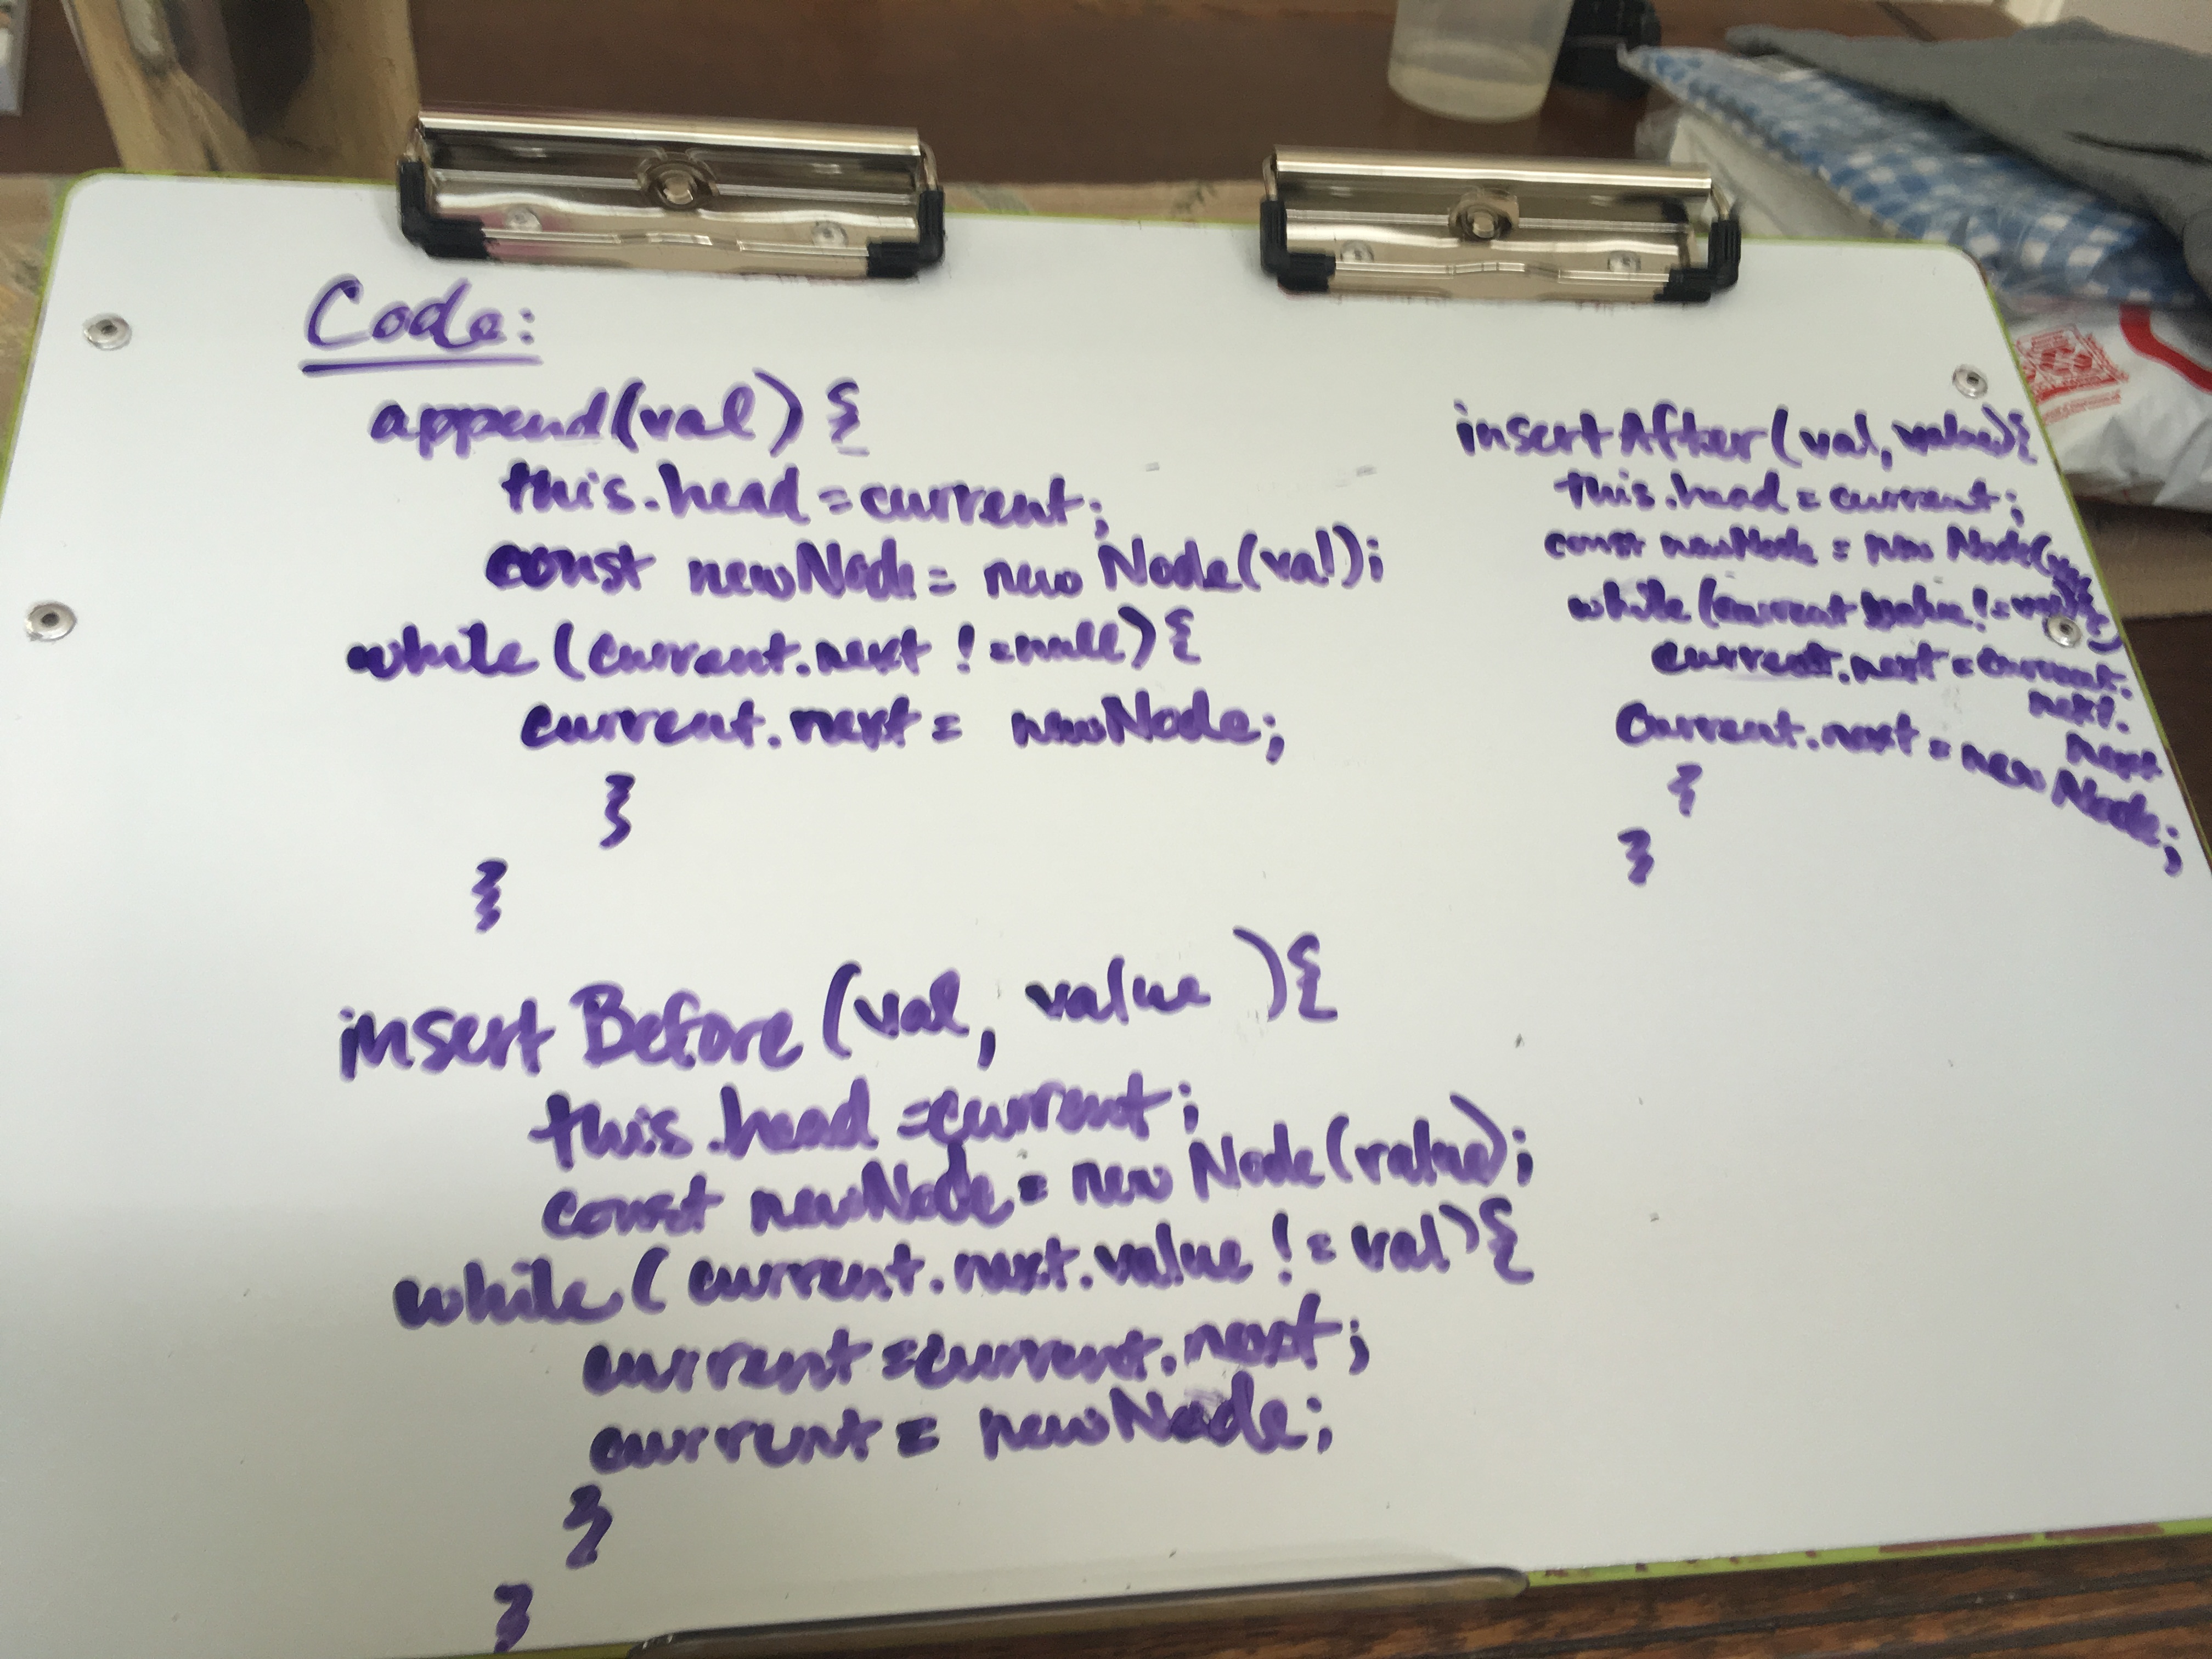 Code:
append(val) {
this.head = current;
const newNode = new Node(val);
while (current.next != null) {
current.next = newNode;
}
}
insert Before (val, value ) {
this.head = current;
const newNode = new Node(value);
while ( current.next.value != val) {
current = current.next;
current = newNode;
}
}
insertAfter (val, value) {
this.head = current;
const newNode = new Node(
while (current != val
current.next = current.
next.
next
Current.next = new Node;
{
}